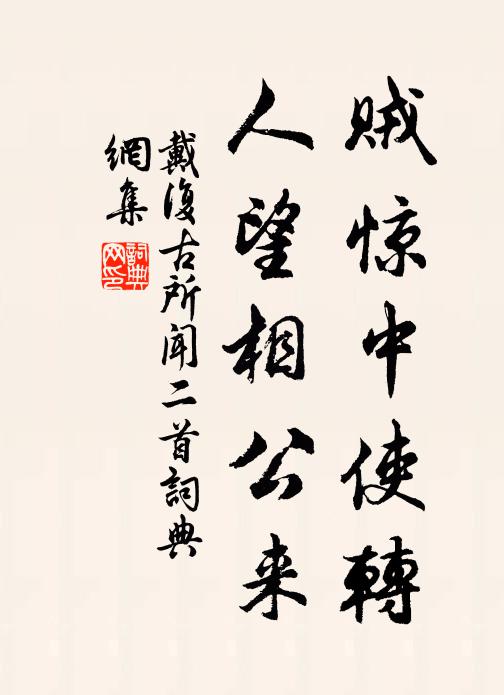 贼惊中使轉
人望相公来
戴復古所聞二首詞典
網集
詞典网印